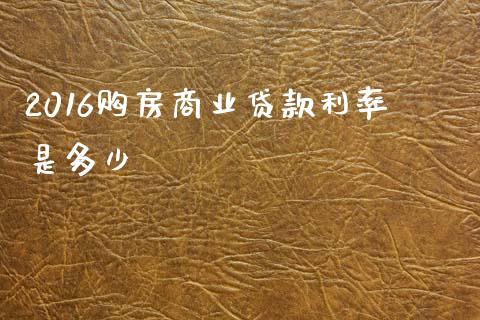 2016购房商业贷款利率
是多少